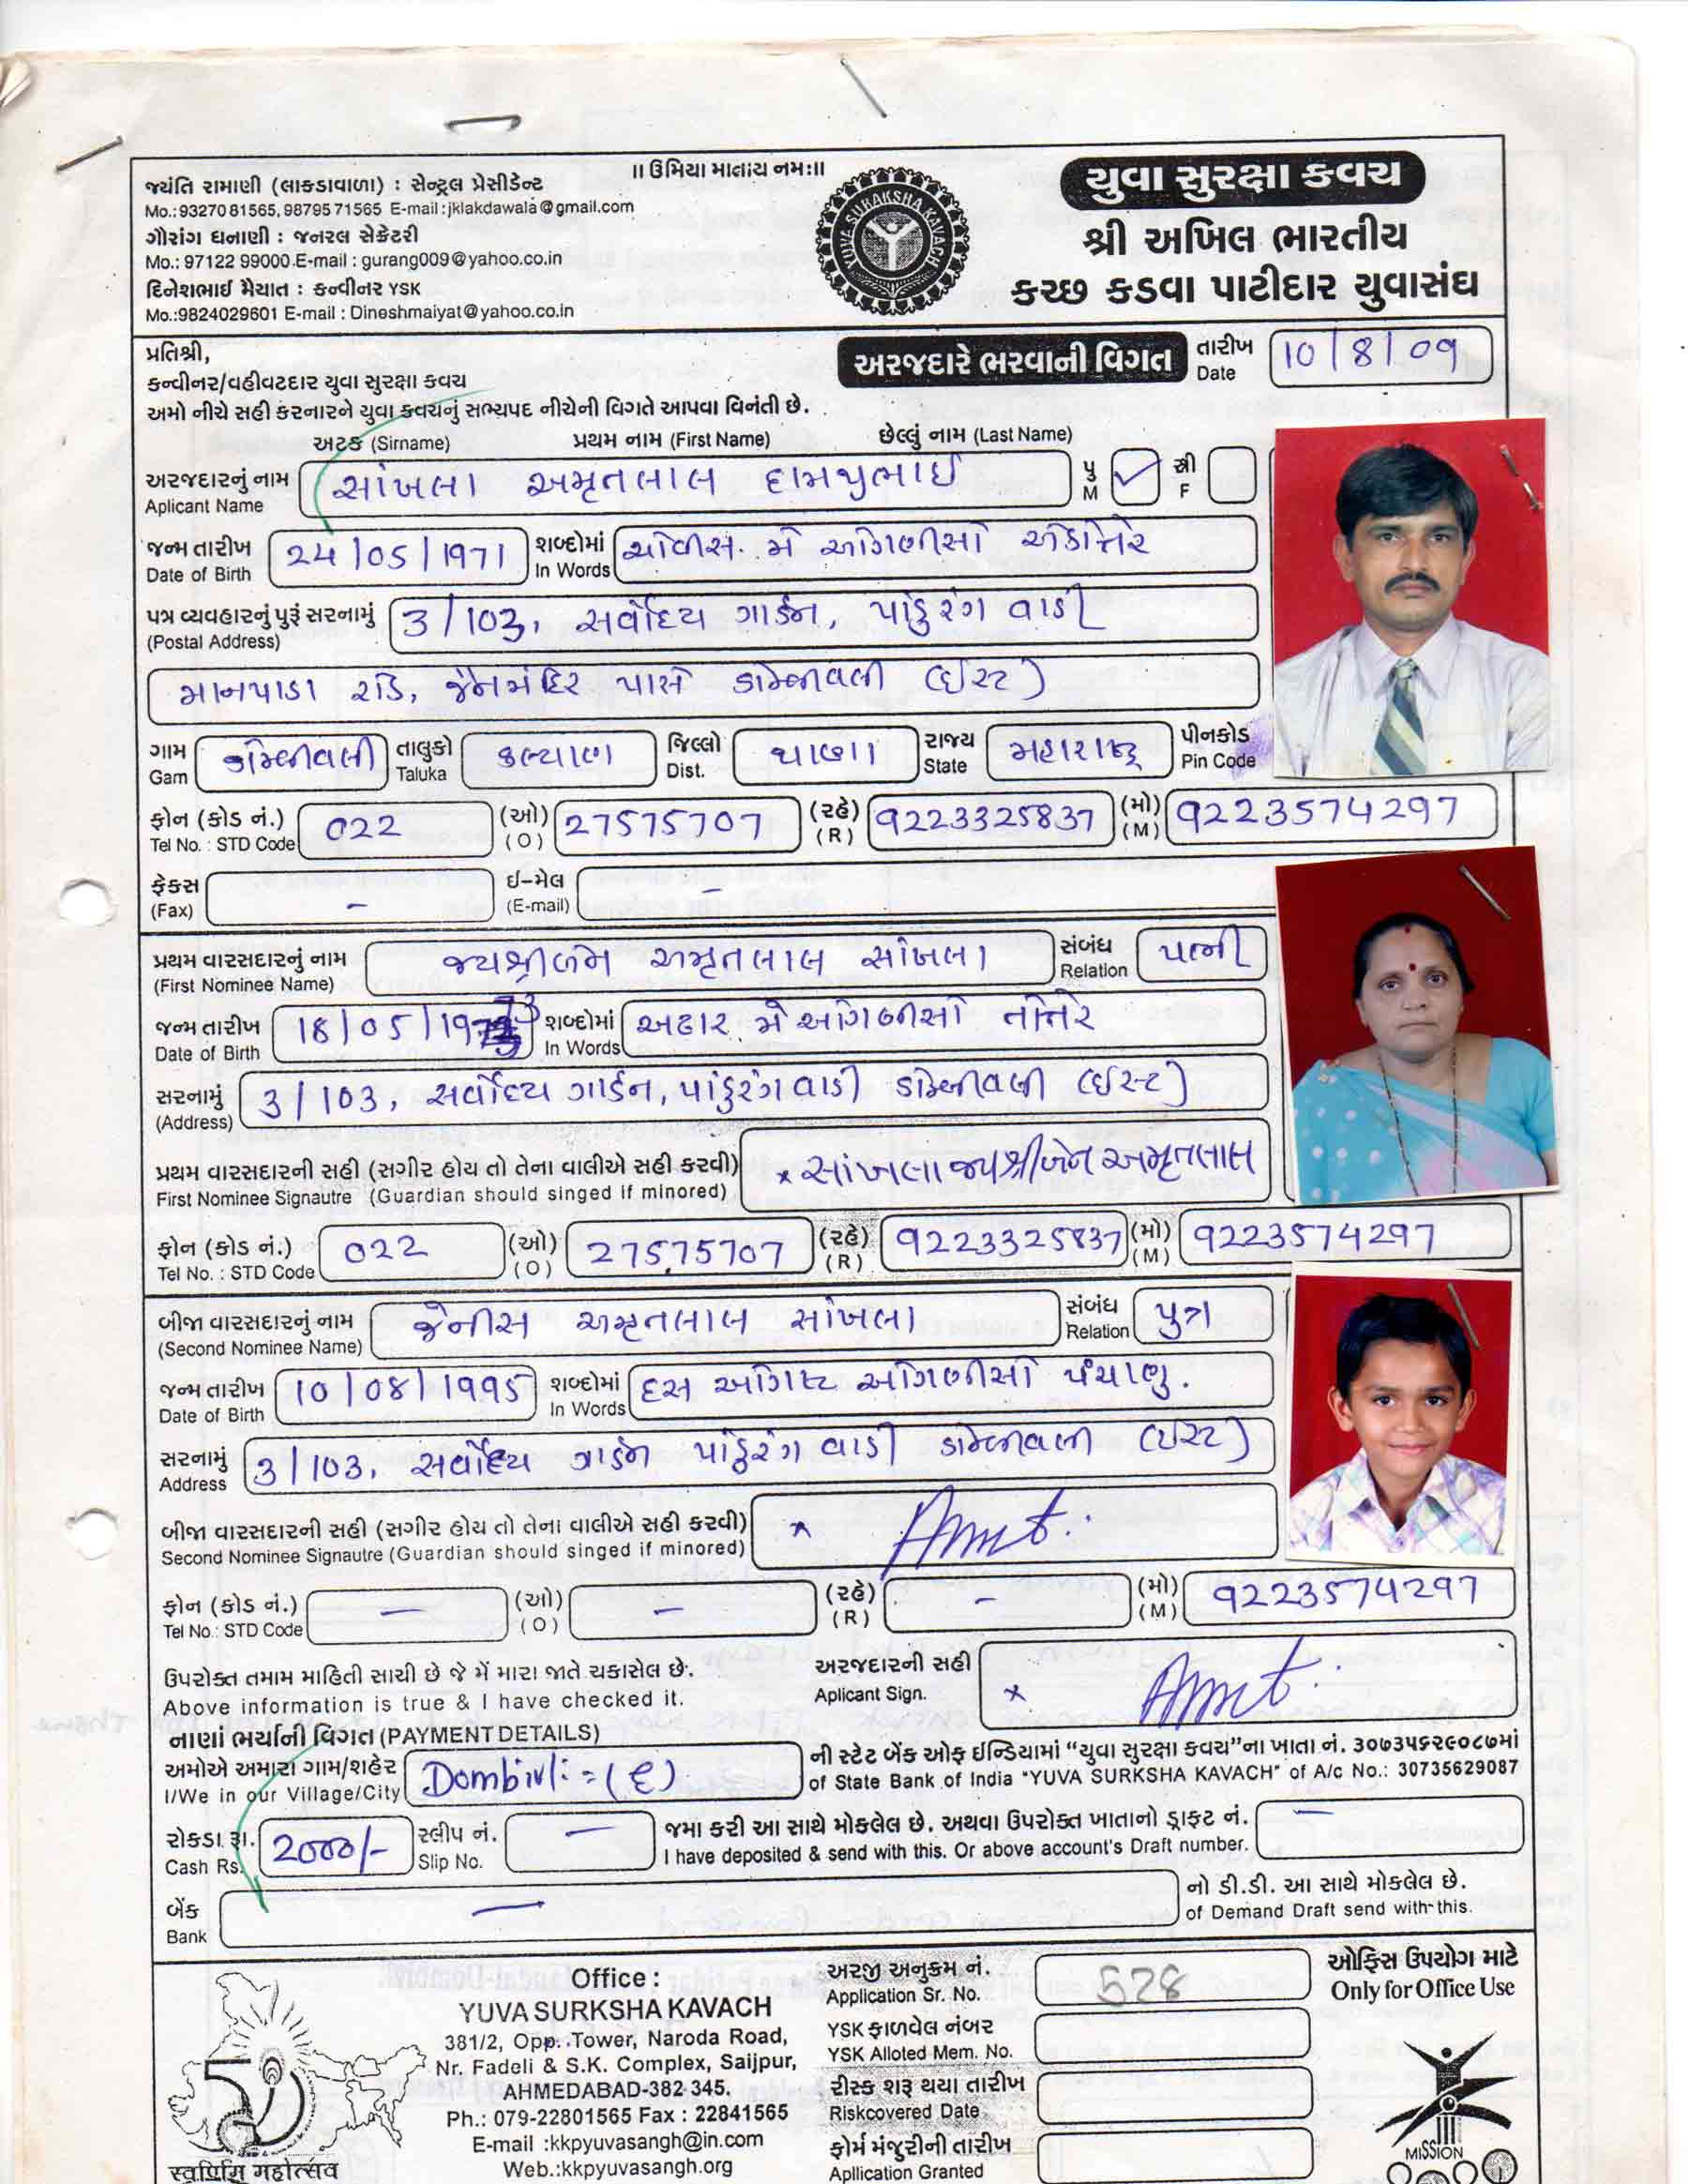 ॥ ઉમિયા માતાય નમઃ॥
જયંતિ રામાણી (લાકડાવાળા) : સેન્ટ્રલ પ્રેસીડેન્ટ
Mo.:9327081565, 9879571565 E-mail :jklakdawala@gmail.com
ગૌરાંગ ધનાણી : જનરલ સેક્રેટરી
Mo.: 97122 99000.E-mail : gurang009@yahoo.co.in
દિનેશભાઈ મૈયાત : કન્વીનર YSK
Mo.:9824029601 E-mail : Dineshmaiyat@yahoo.co.in
YUVA SURAKSHA KAVACH
યુવા સુરક્ષા કવચ
શ્રી અખિલ ભારતીય
કચ્છ કડવા પાટીદાર યુવાસંઘ
પ્રતિશ્રી,
કન્વીનર/વહીવટદાર યુવા સુરક્ષા કવચ
અરજદારે ભરવાની વિગત તારીખ Date 10/8/09
અમો નીચે સહી કરનારને યુવા કવચનું સભ્યપદ નીચેની વિગતે આપવા વિનંતી છે.
અટક (Sirname) પ્રથમ નામ (First Name) છેલ્લું નામ (Last Name)
અરજદારનું નામ Aplicant Name સાંખલા અમૃતલાલ પુ M ✓ સ્ત્રી F
જન્મ તારીખ Date of Birth 24/05/1971 શબ્દોમાં In Words ચોવીસ. મે ઓગણીસો એકોતેર
પત્ર વ્યવહારનું પુરૂં સરનામું (Postal Address) 3/103, સર્વોદય ગાર્ડન, પાંડુરંગ વાડી
માનપાડા રોડ, જૈનમંદિર પાસે ડોમ્બીવલી (ઈસ્ટ)
ગામ Gam ડોમ્બીવલી તાલુકો Taluka કલ્યાણ જિલ્લો Dist. થાણા રાજય State મહારાષ્ટ્ર પીનકોડ Pin Code
ફોન (કોડ નં.) Tel No. : STD Code 022 (ઓ) (O) 27575707 (રહે) (R) 9223325837 (મો) (M) 9223574297
ફેકસ (Fax) – ઈ-મેલ (E-mail) –
પ્રથમ વારસદારનું નામ (First Nominee Name) જયશ્રીબેન અમૃતલાલ સાંખલા સંબંધ Relation પત્ની
જન્મ તારીખ Date of Birth 18/05/1973 શબ્દોમાં In Words અઢાર મે ઓગણીસો તોતેર
સરનામું (Address) 3/103, સર્વોદય ગાર્ડન, પાંડુરંગ વાડી ડોમ્બીવલી (ઈસ્ટ)
પ્રથમ વારસદારની સહી (સગીર હોય તો તેના વાલીએ સહી કરવી)
First Nominee Signautre (Guardian should singed if minored) x સાંખલા જયશ્રીબેન અમૃતલાલ
ફોન (કોડ નં.) Tel No. : STD Code 022 (ઓ) (O) 27575707 (રહે) (R) 9223325837 (મો) (M) 9223574297
બીજા વારસદારનું નામ (Second Nominee Name) જેનીસ અમૃતલાલ સાંખલા સંબંધ Relation પુત્ર
જન્મ તારીખ Date of Birth 10/08/1995 શબ્દોમાં In Words દસ ઓગષ્ટ ઓગણીસો પંચાણુ.
સરનામું Address 3/103, સર્વોદય ગાર્ડન પાંડુરંગ વાડી ડોમ્બીવલી (ઈસ્ટ)
બીજા વારસદારની સહી (સગીર હોય તો તેના વાલીએ સહી કરવી)
Second Nominee Signautre (Guardian should singed if minored) x
ફોન (કોડ નં.) Tel No.: STD Code — (ઓ) (O) — (રહે) (R) – (મો) (M) 9223574297
ઉપરોક્ત તમામ માહિતી સાચી છે જે મેં મારા જાતે ચકાસેલ છે.
Above information is true & I have checked it.
અરજદારની સહી Aplicant Sign. x
નાણાં ભર્યાની વિગત (PAYMENT DETAILS)
અમોએ અમારા ગામ/શહેર I/We in our Village/City Dombivli = (E)
ની સ્ટેટ બેંક ઓફ ઈન્ડિયામાં “યુવા સુરક્ષા કવચ”ના ખાતા નં. ૩૦૭૩૫૬૨૯૦૮૭માં
of State Bank of India "YUVA SURKSHA KAVACH" of A/c No.: 30735629087
રોકડા રૂા. Cash Rs. 2000/- સ્લીપ નં. Slip No. —
જમા કરી આ સાથે મોકલેલ છે. અથવા ઉપરોક્ત ખાતાનો ડ્રાફટ નં. —
I have deposited & send with this. Or above account's Draft number.
બેંક Bank — નો ડી.ડી. આ સાથે મોકલેલ છે.
of Demand Draft send with this.
સ્વર્ણિમ મહોત્સવ
Office :
YUVA SURKSHA KAVACH
381/2, Opp. Tower, Naroda Road,
Nr. Fadeli & S.K. Complex, Saijpur,
AHMEDABAD-382 345.
Ph.: 079-22801565 Fax : 22841565
E-mail :kkpyuvasangh@in.com
Web.:kkpyuvasangh.org
અરજી અનુક્રમ નં. Application Sr. No. 528
YSK ફાળવેલ નંબર
YSK Alloted Mem. No.
રીસ્ક શરૂ થયા તારીખ
Riskcovered Date
ફોર્મ મંજુરીની તારીખ
Apllication Granted
ઓફિસ ઉપયોગ માટે
Only for Office Use
MISSION